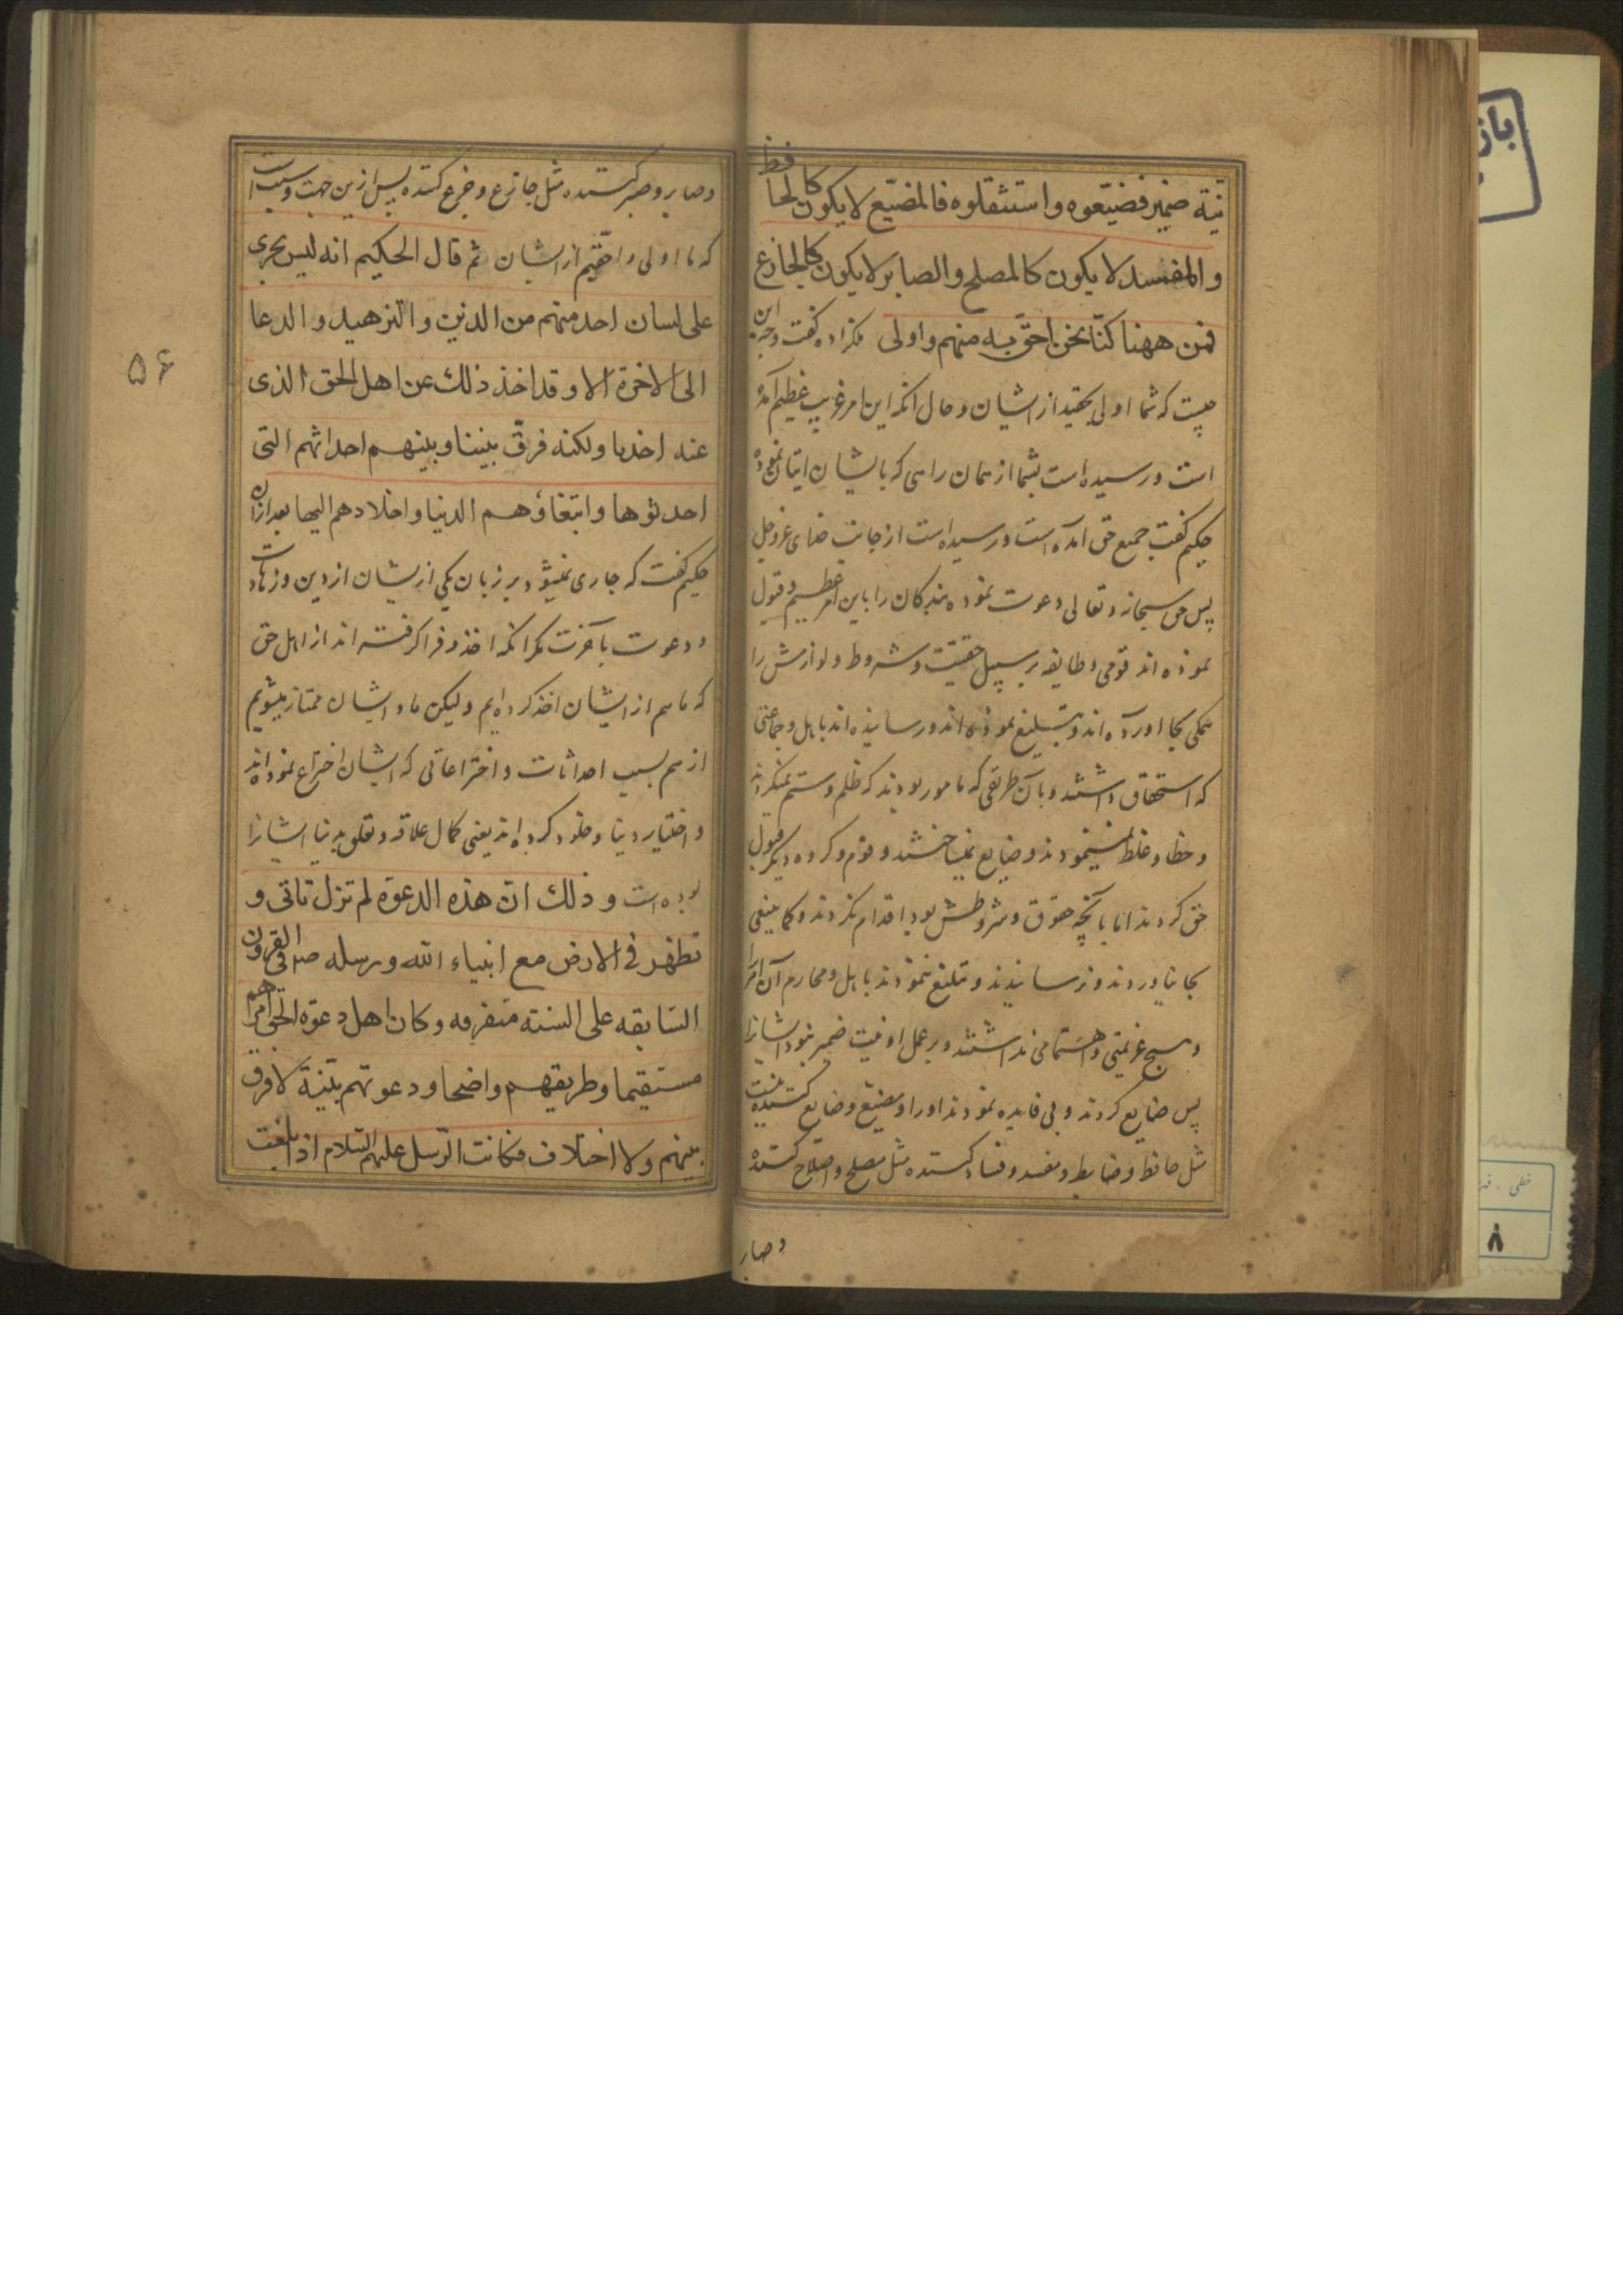 نیة ضمیر فضیّعوه واستثقلوه فالمضیّع لا یکون کالحافظ
والمفسد لا یکون کالمصلح والصابر لا یکون کالجازع
فمن ههنا کنّا نحن احقّ به منهم واولی ملکزاده گفت وجه این
چیست که شما اولی بحقید از ایشان و حال انکه این امر غریب عظیم آمده
است و رسیده است بشما از همان راهی که بایشان اتیان نموده
حکیم گفت جمیع حق آمده است و رسیده است از جانب خدای عزوجل
پس حق سبحانه وتعالی دعوت نموده بندگان را باین امر عظیم و قبول
نموده اند قومی و طایفه بر سبیل حقیقت و شروط و لوازمش را
همکی بجا اورده اند و تبلیغ نموده اند و رسانیده اند باهل و جماعتی
که استحقاق داشتند و بآن طریقی که مامور بودند که ظلم و ستم نمیکردند
و خطا و غلط نمینمودند و ضایع نمیساختند و قوم و کروه دیکر قبول
حق کردند اما بآنچه حقوق و شروطش بود اقدام نکردند و کما ینبغی
بجا نیاوردند و نرسانیدند و تبلیغ ننمودند باهل و محارم آن امر را
و هیچ عزیمتی و اهتمامی نداشتند و بر عمل او نیت ضمیر نبود ایشانرا
پس ضایع کردند و بی فایده نمودند اورا و مضیع و ضایع کننده نیست
مثل حافظ و ضابط و مفسد و فساد کننده مثل مصلح و اصلاح کننده
و صابر
و صابر و صبر کننده مثل جازع و جزع کننده پس ازین جهت و سبب است
که ما اولی و احقّیم از ایشان ثم قال الحکیم انه لیس یجری
علی لسان احد منهم من الدین والتزهید والدعا
الی الاخرة الا وقد اخذ ذلک عن اهل الحق الذی
عنه اخذنا ولکنه فرّق بیننا وبینهم احداثهم التی
احدثوها وابتغاؤهم الدنیا واخلادهم الیها بعد ازان
حکیم گفت که جاری نمیشود بر زبان یکی از ایشان از دین و زهادت
و دعوت بآخرت مکر انکه اخذ و فرا کرفته اند از اهل حق
که ما هم از ایشان اخذ کرده ایم ولیکن ما و ایشان ممتاز میشویم
از هم بسبب احداثات و اختراعاتی که ایشان اختراع نموده اند
و اختیار دنیا و خلود کرده اند یعنی کمال علاقه و تعلق بدنیا ایشانرا
بوده است و ذلک ان هذه الدعوة لم تزل تاتی و
تظهر فی الارض مع انبیاء الله ورسله فی القرون
السّابقه علی السنته متفرقه وکان اهل دعوة الحق امرهم
مستقیما وطریقهم واضحا ودعوتهم بیّنة لا فرق
بینهم ولا اختلاف فکانت الرّسل علیهم السّلام اذا بلغت
۵۶
۸